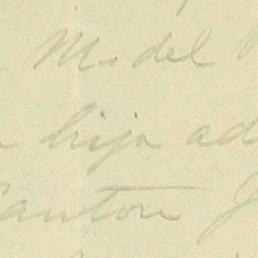 M. del
hija ad
Canton J